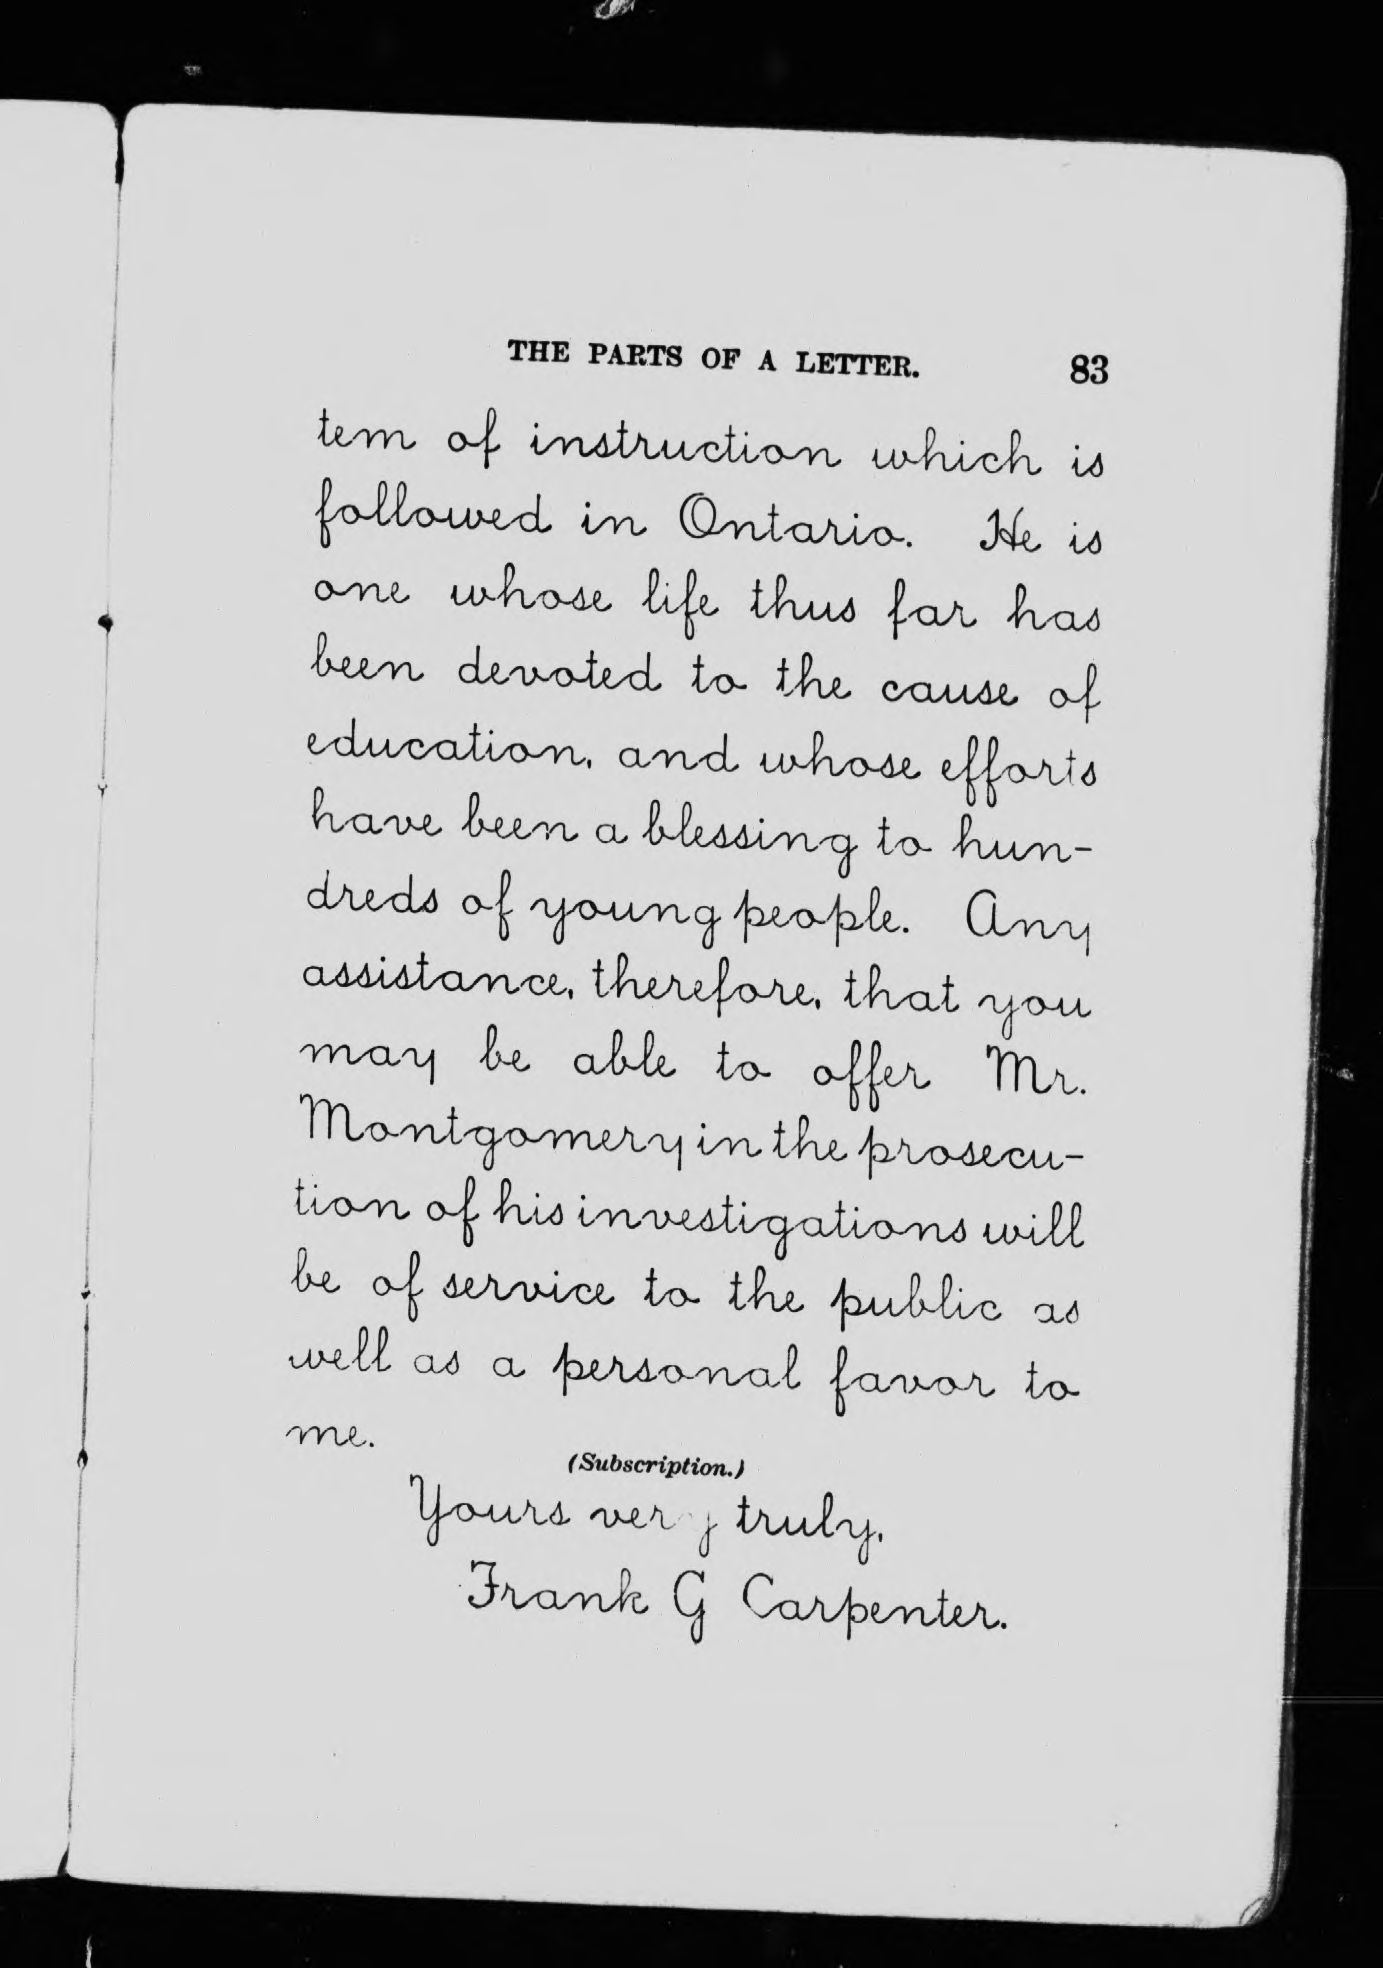 THE PARTS OF A LETTER. 83
tem of instruction which is
followed in Ontario. He is
one whose life thus far has
been devoted to the cause of
education, and whose efforts
have been a blessing to hun-
dreds of young people. Any
assistance, therefore, that you
may be able to offer Mr.
Montgomery in the prosecu-
tion of his investigations will
be of service to the public as
well as a personal favor to
me.
(Subscription.)
Yours very truly,
Frank G Carpenter.